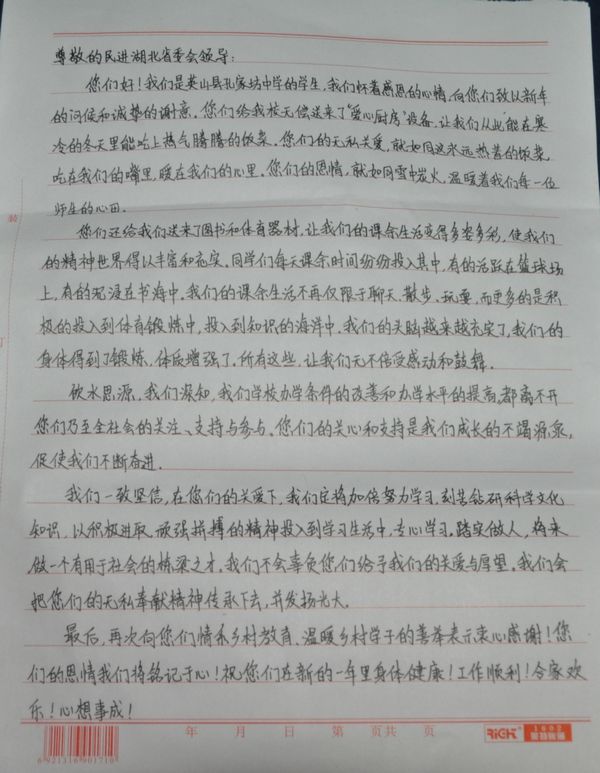 尊敬的民进湖北省委会领导:
您们好!我们是英山县孔家坊中学的学生,我们怀着感恩的心情,向您们致以新年
的问候和诚挚的谢意。您们给我校无偿送来了“爱心厨房”设备,让我们从此能在寒
冷的冬天里能吃上热气腾腾的饭菜。您们的无私关爱,就如同这永远热着的饭菜,
吃在我们的嘴里,暖在我们的心里。您们的恩情,就如同雪中炭火,温暖着我们每一位
师生的心田。
您们还给我们送来了图书和体育器材,让我们的课余生活变得多姿多彩,使我们
的精神世界得以丰富和充实。同学们每天课余时间纷纷投入其中,有的活跃在篮球场
上,有的沉浸在书海中,我们的课余生活不再仅限于聊天、散步、玩耍,而更多的是积
极的投入到体育锻炼中,投入到知识的海洋中。我们的头脑越来越充实了,我们的
身体得到了锻炼,体质增强了。所有这些,让我们无不倍受感动和鼓舞。
饮水思源,我们深知,我们学校办学条件的改善和办学水平的提高,都离不开
您们乃至全社会的关注、支持与参与。您们的关心和支持是我们成长的不竭源泉,
促使我们不断奋进。
我们一致坚信,在您们的关爱下,我们定将加倍努力学习,刻苦钻研科学文化
知识,以积极进取、顽强拼搏的精神投入到学习生活中,专心学习,踏实做人,将来
做一个有用于社会的栋梁之才。我们不会辜负您们给予我们的关爱与厚望。我们会
把您们的无私奉献精神传承下去,并发扬光大。
最后,再次向您们情系乡村教育、温暖乡村学子的善举表示衷心感谢!您
们的恩情我们将铭记于心!祝您们在新的一年里身体健康!工作顺利!合家欢
乐!心想事成!
年 月 日 第 页共 页
RiCH
6921316901710
装
订